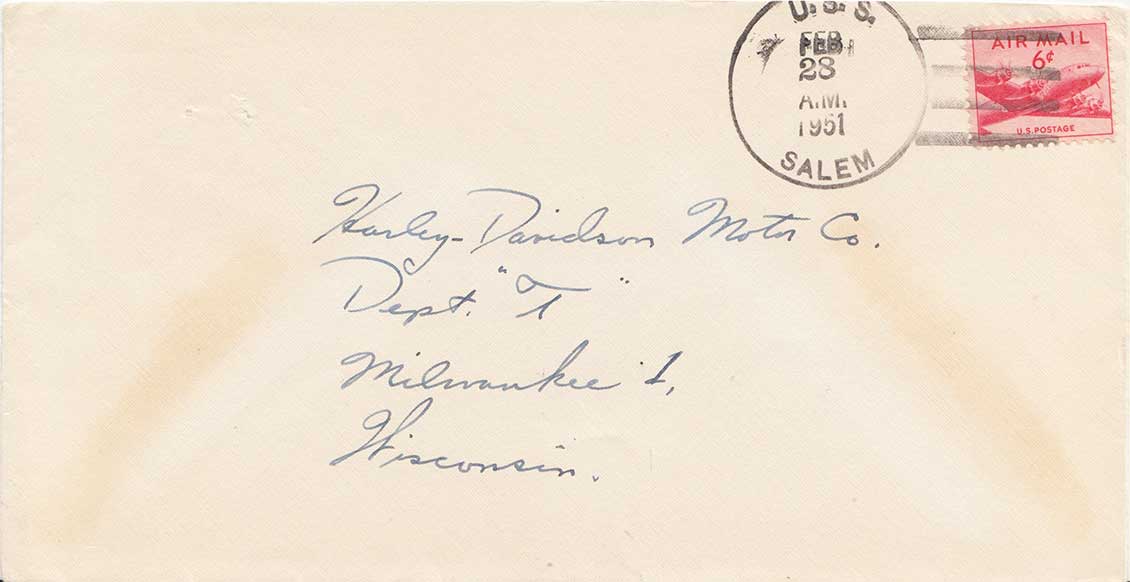 U.S.S.
FEB
28
A.M.
1951
SALEM
AIR MAIL
6¢
U.S. POSTAGE
Harley-Davidson Motor Co.
Dept. "T"
Milwaukee 1,
Wisconsin.